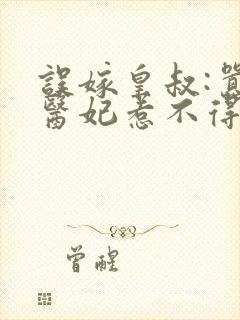 誤嫁皇叔:
醫妃惹不得
曾醒